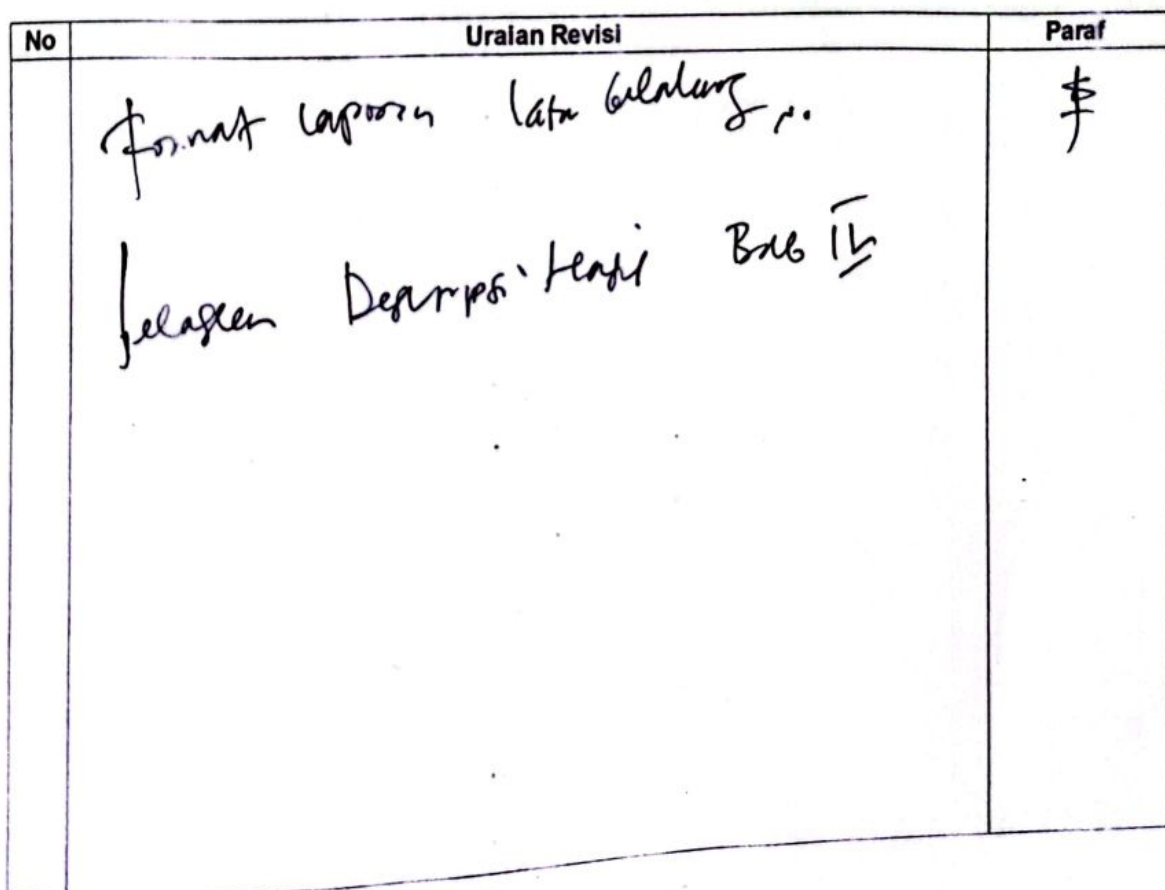 No Uraian Revisi Paraf
Format laporan latar belakang ...
Jelaskan Deskripsi Hasil Bab IV